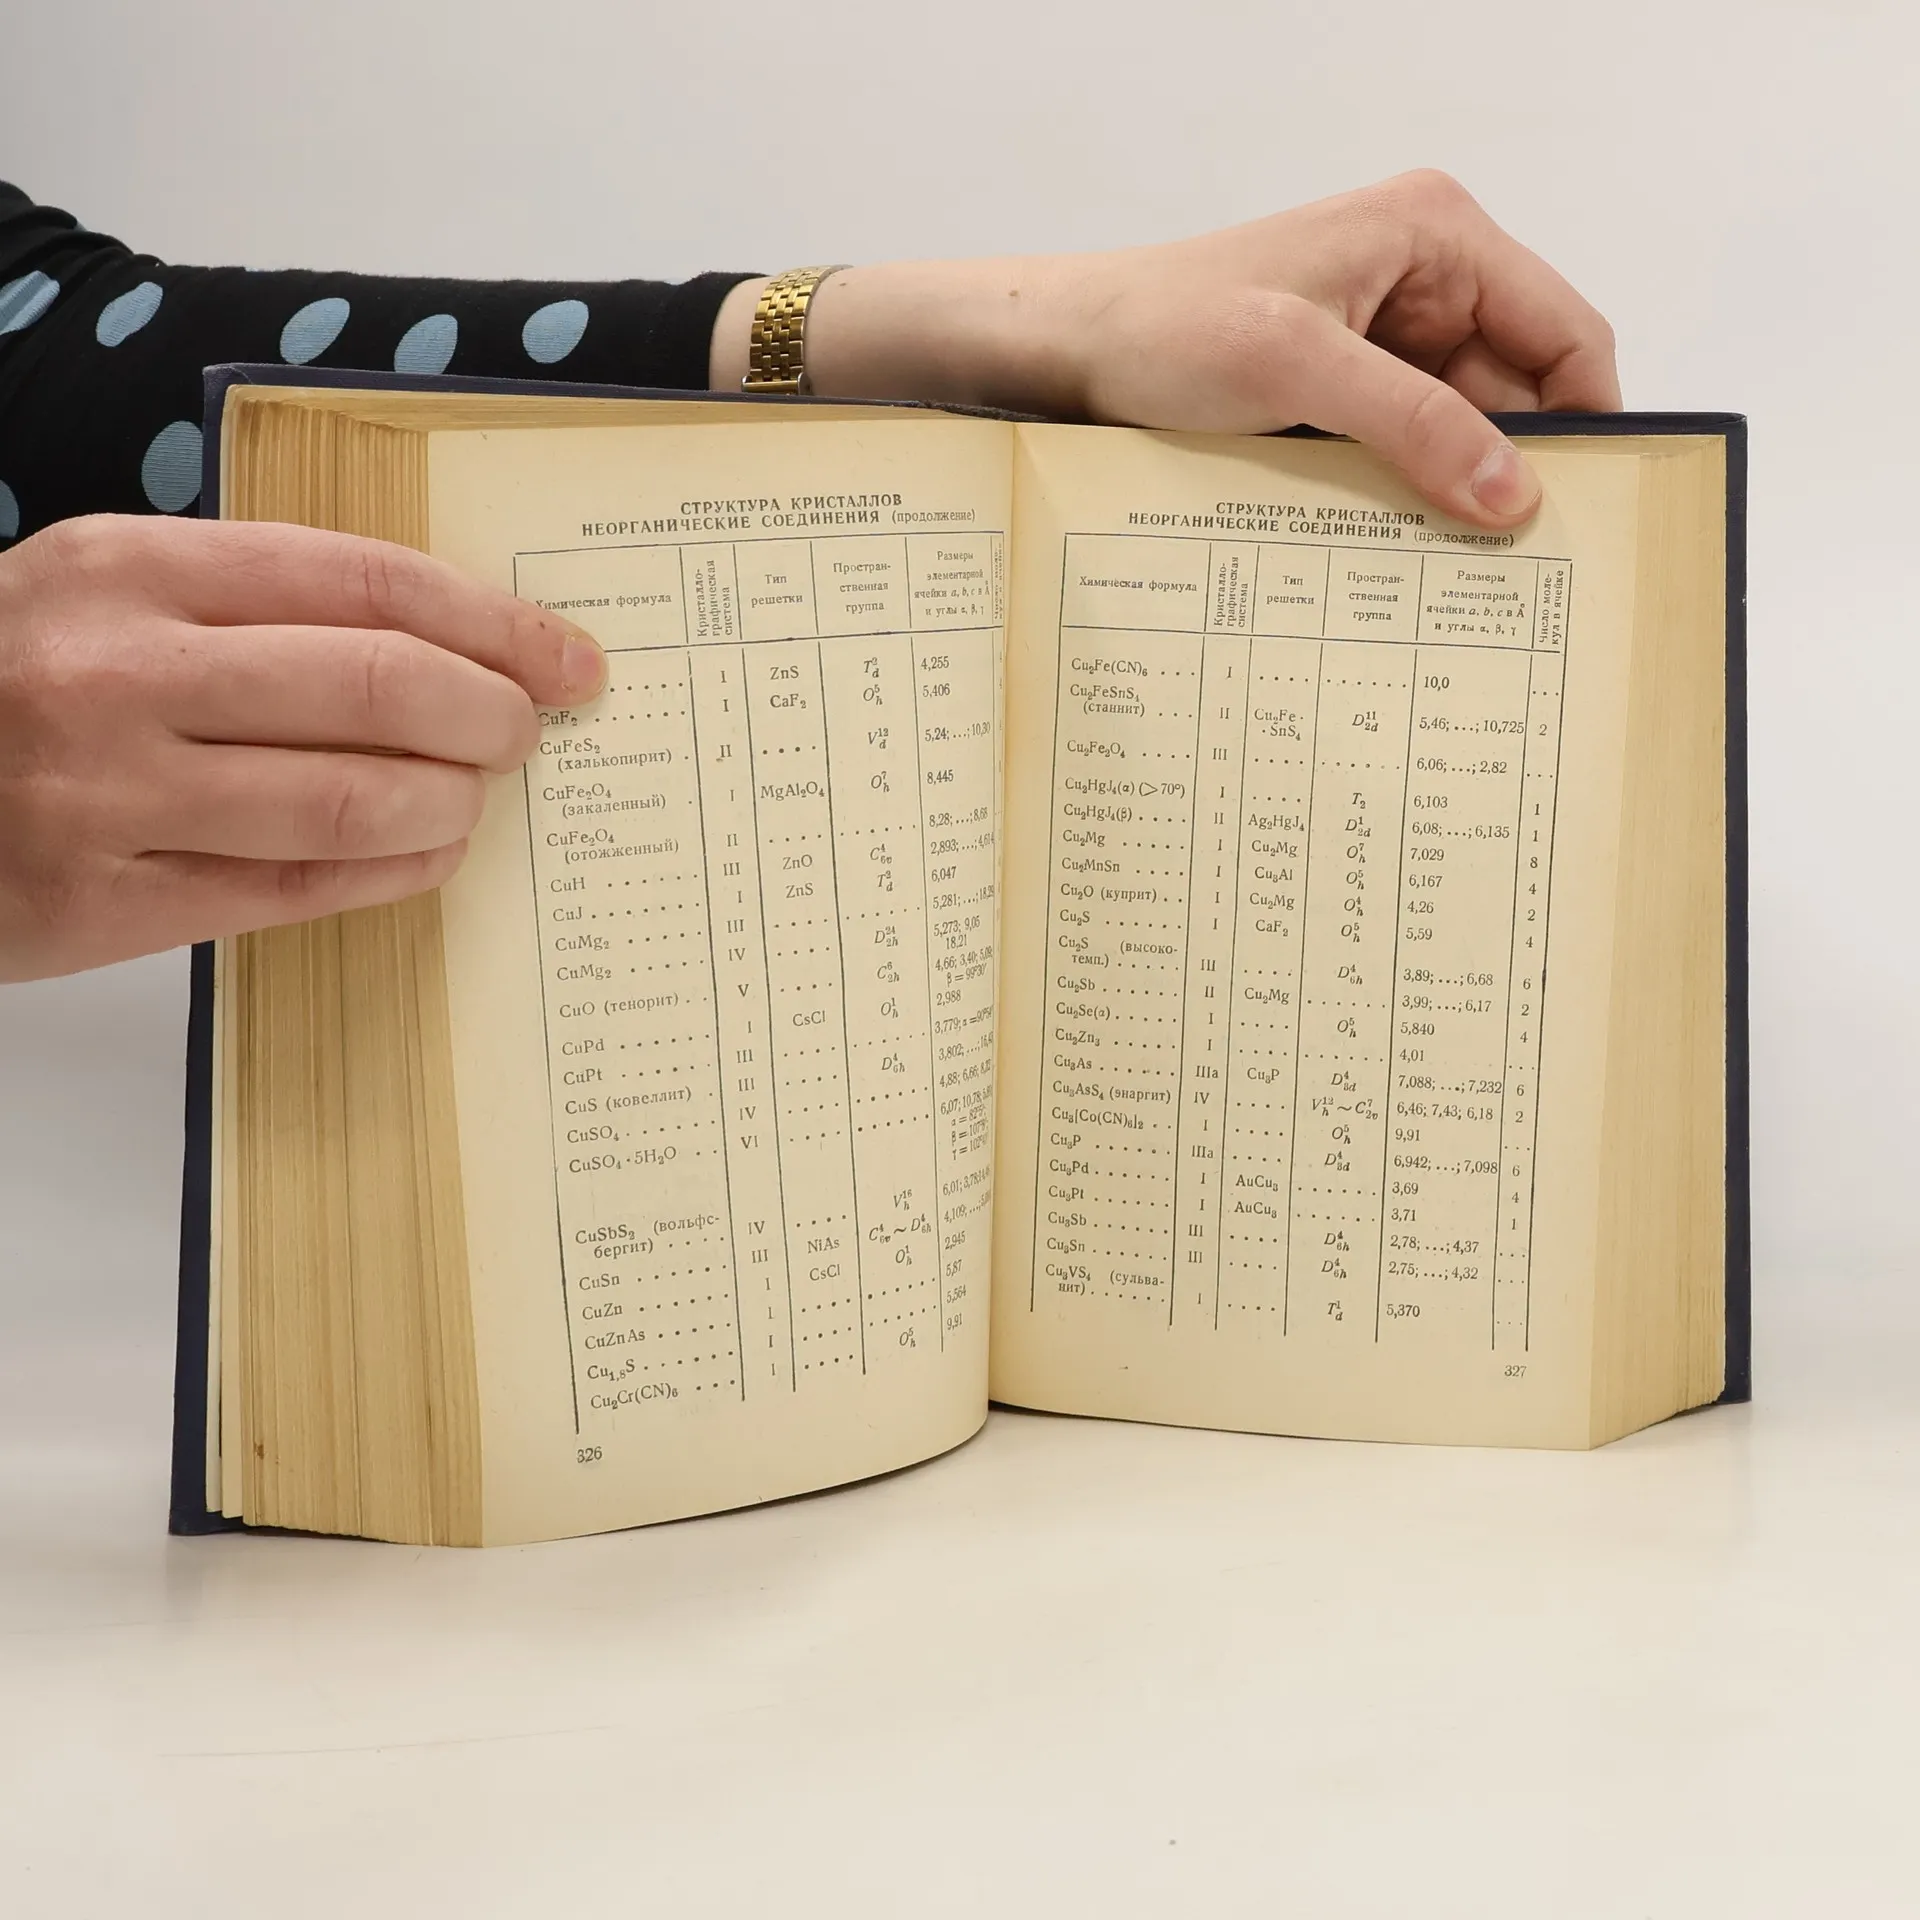 СТРУКТУРА КРИСТАЛЛОВ
НЕОРГАНИЧЕСКИЕ СОЕДИНЕНИЯ (продолжение)
Химическая формула
Кристалло-
графическая
система
Тип
решетки
Простран-
ственная
группа
Размеры
элементарной
ячейки a, b, c в Å
и углы α, β, γ
. . . . . I ZnS T²d 4,255
CuF₂ . . . . . . I CaF₂ O⁵h 5,406
CuFeS₂
(халькопирит) . II . . . . V¹²d 5,24; ...; 10,30
CuFe₂O₄
(закаленный) . I MgAl₂O₄ O⁷h 8,445
CuFe₂O₄
(отожженный) II . . . . . . . . . . 8,28; ...; 8,68
CuH . . . . . . III ZnO C⁴6v 2,893; ...; 4,614
CuJ . . . . . . I ZnS T²d 6,047
CuMg₂ . . . . . III . . . . . . . . . . 5,281; ...; 18,25
CuMg₂ . . . . . IV . . . . D²⁴2h 5,273; 9,05
18,21
CuO (тенорит) . . V . . . . C⁶2h 4,66; 3,40; 5,09;
β = 99°30′
CuPd . . . . . . I CsCl O¹h 2,988
CuPt . . . . . . III . . . . . . . . . . 3,779; α = 90°54′
CuS (ковеллит) . III . . . . D⁴6h 3,802; ...; 16,43
CuSO₄ . . . . . . IV . . . . . . . . . . 4,88; 6,66; 8,32
CuSO₄ · 5H₂O . . VI . . . . . . . . . . 6,07; 10,78;
α = 82°5′;
β = 107°8′;
γ = 102°41′
CuSbS₂ (вольфс-
бергит) . . . . IV . . . . V¹⁶h 6,01; 3,78; 14,46
CuSn . . . . . . III NiAs C⁴6v ~ D⁴6h 4,109; ...;
CuZn . . . . . . I CsCl O¹h 2,945
CuZnAs . . . . . I . . . . . . . . . . 5,87
Cu₁,₈S . . . . . . I . . . . . . . . . . 5,564
Cu₂Cr(CN)₆ . . . I . . . . O⁵h 9,91
326
СТРУКТУРА КРИСТАЛЛОВ
НЕОРГАНИЧЕСКИЕ СОЕДИНЕНИЯ (продолжение)
Химическая формула
Кристалло-
графическая
система
Тип
решетки
Простран-
ственная
группа
Размеры
элементарной
ячейки a, b, c в Å
и углы α, β, γ
Число моле-
кул в ячейке
Cu₂Fe(CN)₆ . . . I . . . . . . . . . . 10,0 . . .
Cu₂FeSnS₄
(станнит) . . . II Cu₂Fe · D¹¹2d 5,46; ...; 10,725 2
· SnS₄
Cu₂Fe₂O₄ . . . . III . . . . . . . . . . 6,06; ...; 2,82 . . .
Cu₂HgJ₄(α) (>70°) I . . . . T₂ 6,103 1
Cu₂HgJ₄(β) . . . . II Ag₂HgJ₄ D¹2d 6,08; ...; 6,135 1
Cu₂Mg . . . . . I Cu₂Mg O⁷h 7,029 8
Cu₂MnSn . . . . I Cu₃Al O⁵h 6,167 4
Cu₂O (куприт) . . I Cu₂Mg O⁴h 4,26 2
Cu₂S . . . . . . I CaF₂ O⁵h 5,59 4
Cu₂S (высоко-
темп.) . . . . . III . . . . D⁴6h 3,89; ...; 6,68 6
Cu₂Sb . . . . . . II Cu₂Mg . . . . . . 3,99; ...; 6,17 2
Cu₂Se(α) . . . . . I . . . . O⁵h 5,840 4
Cu₂Zn₃ . . . . . I . . . . . . . . . . 4,01 . . .
Cu₃As . . . . . . IIIa Cu₃P D⁴3d 7,088; ...; 7,232 6
Cu₃AsS₄ (энаргит) IV . . . . V¹²h ~ C⁷2v 6,46; 7,43; 6,18 2
Cu₃[Co(CN)₆]₂ . . I . . . . O⁵h 9,91 . . .
Cu₃P . . . . . . IIIa . . . . D⁴3d 6,942; ...; 7,098 6
Cu₃Pd . . . . . . I AuCu₃ . . . . . . 3,69 4
Cu₃Pt . . . . . . I AuCu₃ . . . . . . 3,71 1
Cu₃Sb . . . . . . III . . . . D⁴6h 2,78; ...; 4,37 . . .
Cu₃Sn . . . . . . III . . . . D⁴6h 2,75; ...; 4,32 . . .
Cu₃VS₄ (сульва-
нит) . . . . . . I . . . . T¹d 5,370 . . .
327